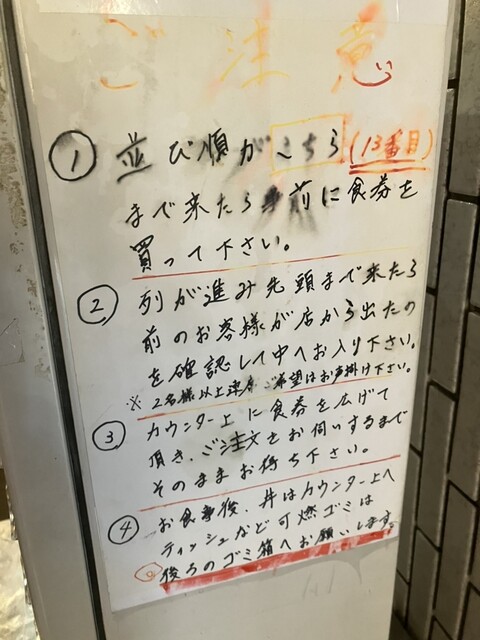 ご注意
① 並び順がこちら(13番目)
まで来たら事前に食券を
買って下さい。
② 列が進み先頭まで来たら
前のお客様が店から出たの
を確認して中へお入り下さい。
※2名様以上連席ご希望はお声掛け下さい。
③ カウンター上に食券を広げて
頂き、ご注文をお伺いするまで
そのままお待ち下さい。
④ お食事後、丼はカウンター上へ
ティッシュなど可燃ゴミは
後ろのゴミ箱へお願いします。